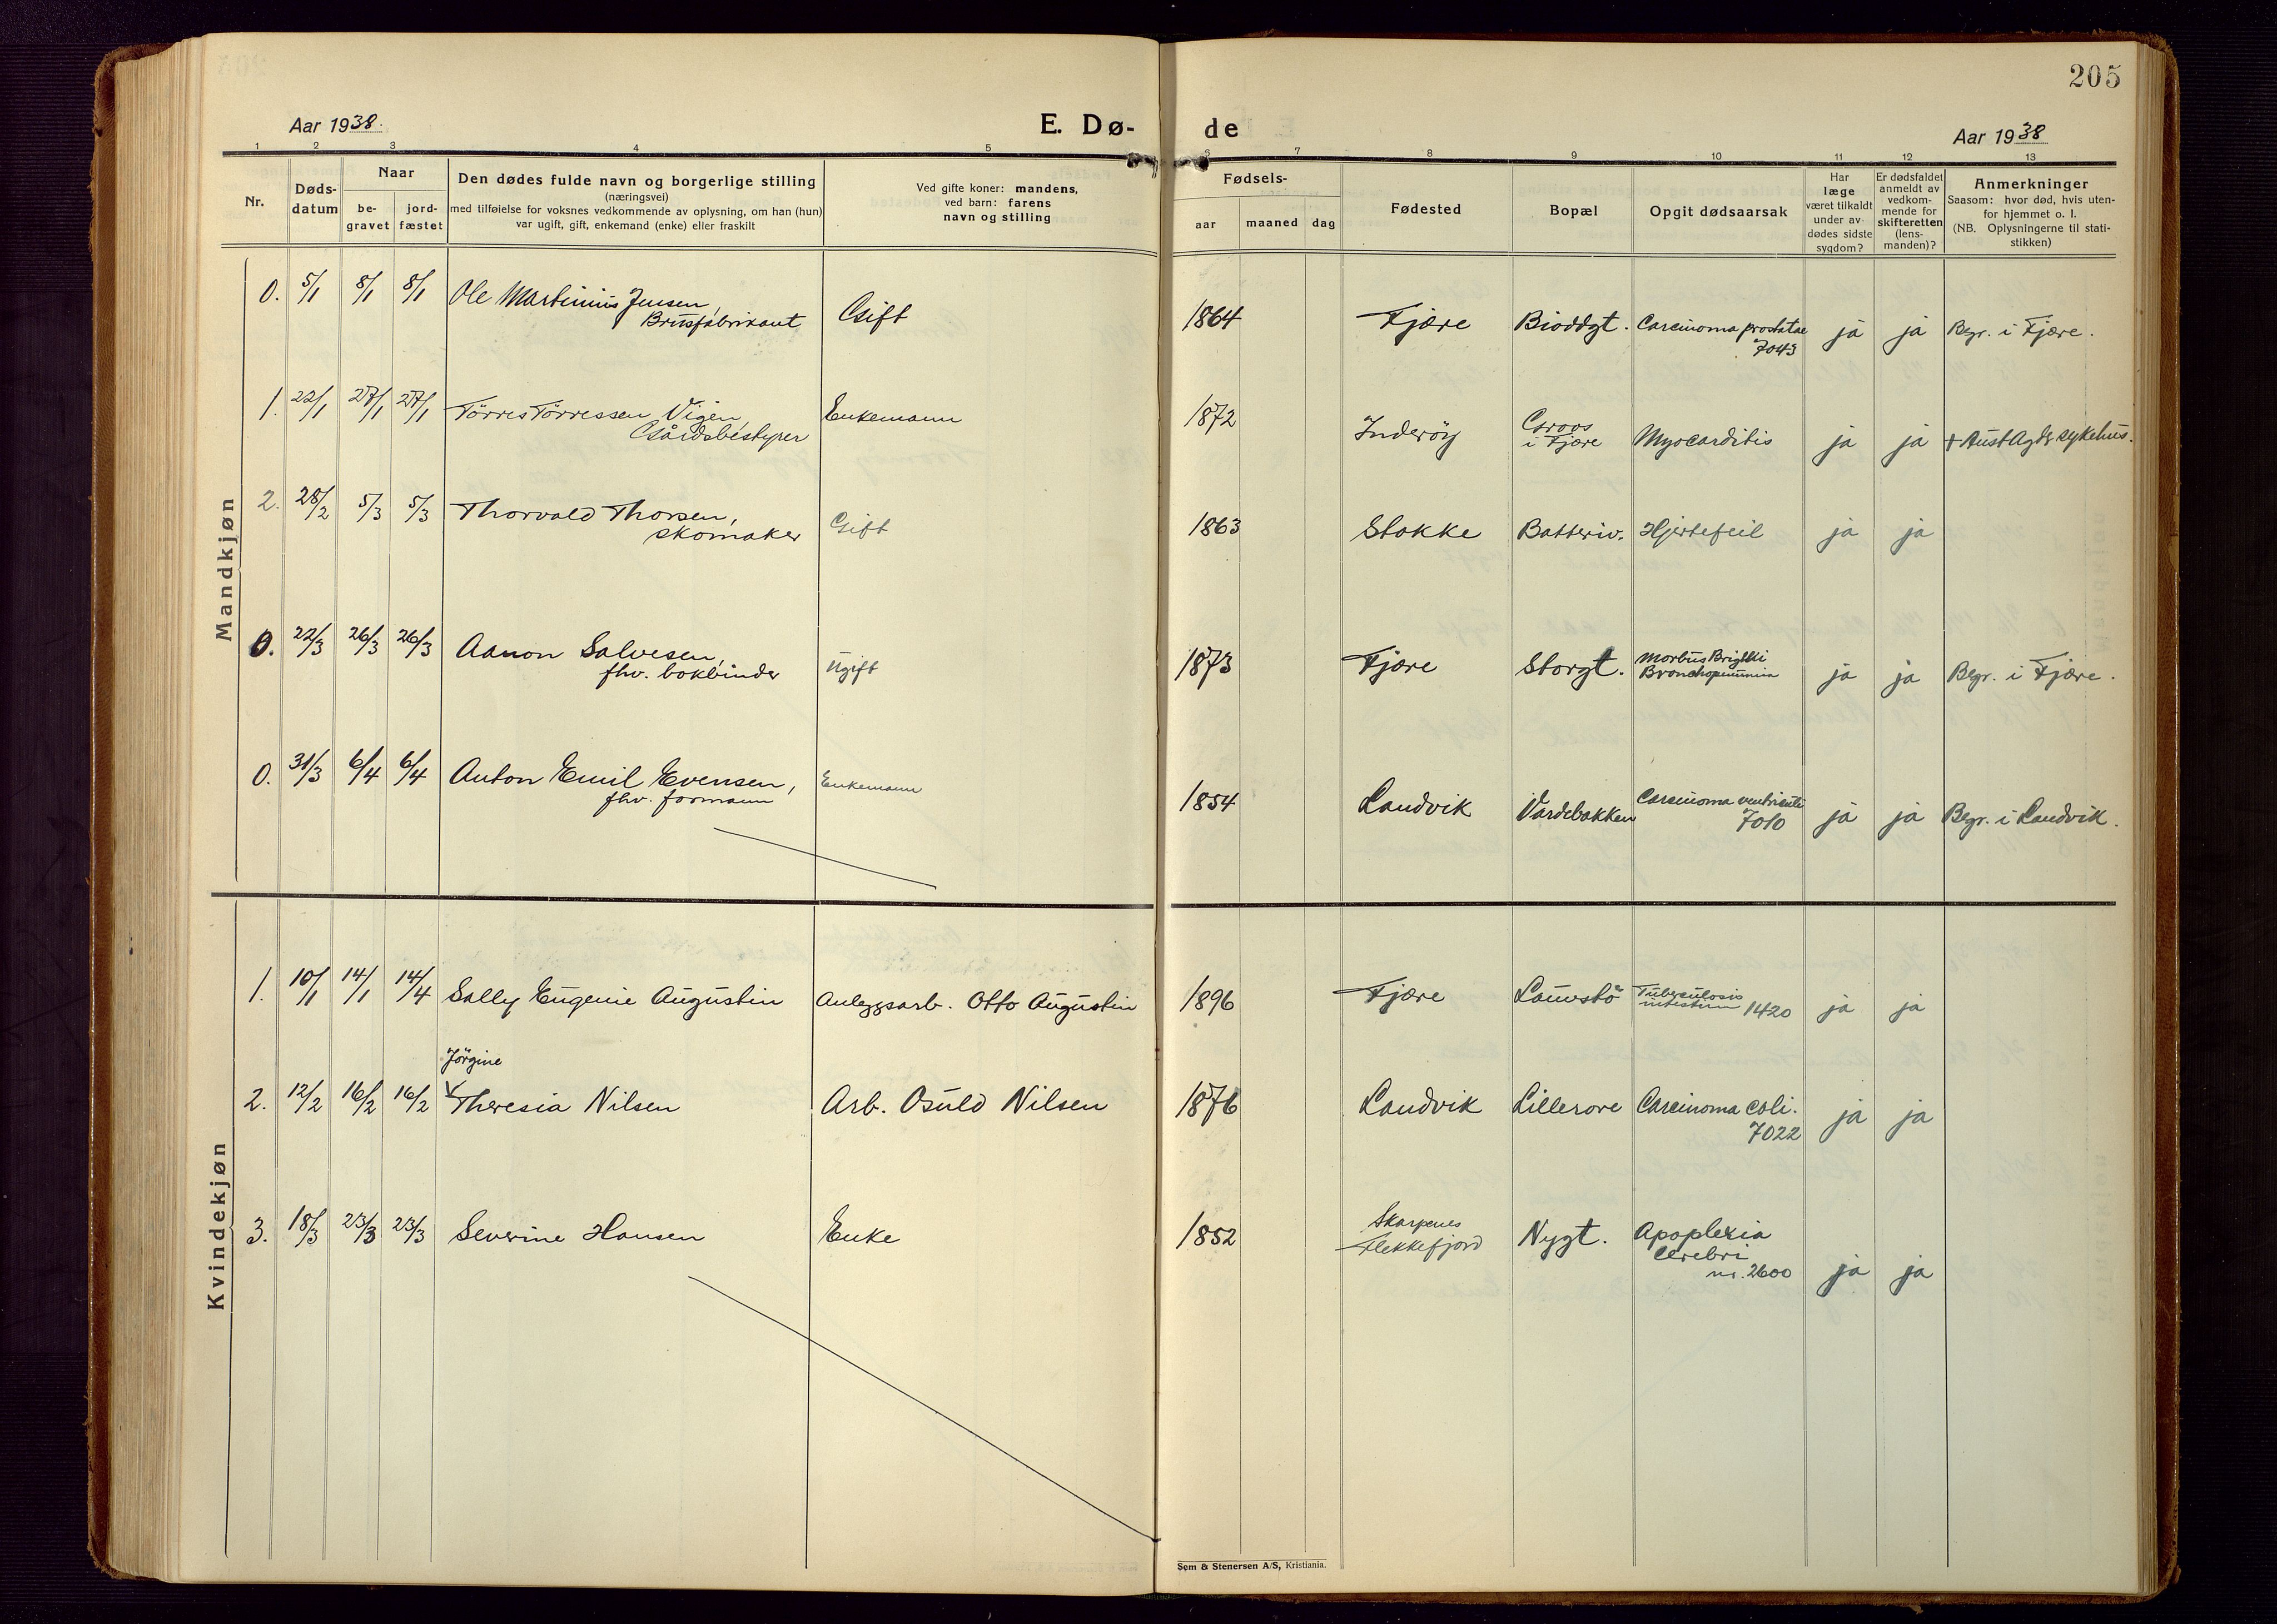 205
Aar 1938.
E. Dø-
de
Aar 1938
1 2 3 4 5 6 7 8 9 10 11 12 13
Nr.
Døds-
datum
Naar
be-
gravet
jord-
fæstet
Den dødes fulde navn og borgerlige stilling
(næringsvei)
med tilføielse for voksnes vedkommende av oplysning, om han (hun)
var ugift, gift, enkemand (enke) eller fraskilt
Ved gifte koner: mandens,
ved barn: farens
navn og stilling
Fødsels-
aar maaned dag
Fødested
Bopæl
Opgit dødsaarsak
Har
læge
været tilkaldt
under av-
dødes sidste
sygdom?
Er dødsfaldet
anmeldt av
vedkom-
mende for
skifteretten
(lens-
manden)?
Anmerkninger
Saasom: hvor død, hvis uten-
for hjemmet o. l.
(NB. Oplysningerne til stati-
stikken)
Mandkjøn
0. 5/1 8/1 8/1 Ole Martinius Jensen,
Brusfabrikant
Gift
1864 Fjære Bioddgt. Carcinoma prostatae
7043
ja ja Begr. i Fjære.
1. 22/1 27/1 27/1 Törres Törressen Vigen,
Gårdsbestyrer
Enkemann
1872 Inderöy Groos
i Fjære
Myocarditis ja ja + Aust Agder sykehus.
2. 28/2 5/3 5/3 Thorvald Thorsen,
skomaker
Gift
1863 Stokke Batteriv. Hjertefeil ja ja
0. 22/3 26/3 26/3 Aanon Salvesen,
fhv. bokbinder
Ugift
1873 Fjære Storgt. Morbus Brightii
Bronchopneumnia
ja ja Begr. i Fjære.
0. 31/3 6/4 6/4 Anton Emil Evensen,
fhv. formann
Enkemann
1854 Landvik Vardebakken Carcinoma ventriculi
7010
ja ja Begr. i Landvik.
Kvindekjøn
1. 10/1 14/1 14/4 Sally Eugenie Augustin Anleggsarb. Otto Augustin
1896 Fjære Lauvstö Tuberculosis
intestinn 1420
ja ja
Jörgine
2. 12/2 16/2 16/2 Theresia Nilsen Arb. Osuld Nilsen
1876 Landvik Lillerore Carcinoma coli.
7022
ja ja
3. 18/3 23/3 23/3 Severine Hansen Enke
1852 Skarpenes
Flekkefjord
Nygt. Apoplexia
cerebri
nr. 2600
ja ja
Sem & Stenersen A/S, Kristiania.